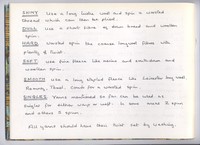 SHINY Use a long lustre wool and spin a worsted
thread which can then be plied.
DULL Use a short fibre of down breed and woollen
spin.
HARD Worsted spin the coarse longwool fibres with
plenty of twist.
SOFT Use fine fleece like merino and
woollen spin.
SMOOTH Use a long stapled fleece like Leicester long wool,
Romney, Teeswater. Comb for a worsted spin.
SINGLES Yarns mentioned so far can be used as
singles for either warp or weft. Ie some
and others S spin.
All yarns should have their twist set by washing.